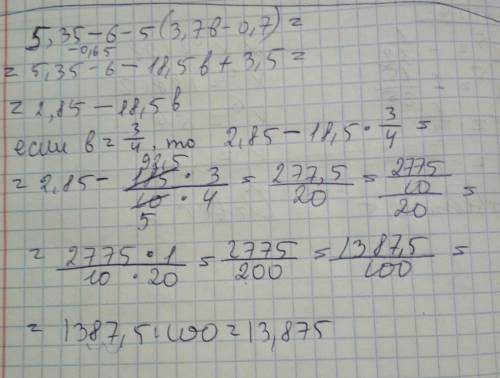 5,35-6-5(3,7в-0,7)=
-0,65
= 5,35-6-18,5в+3,5=
= 2,85-18,5в
если в = 3/4, то 2,85-18,5·3/4=
92,5
= 2,85- 185·3/10·4 = 277,5/20 = 2775/10/20 =
5
= 2775·1/10·20 = 2775/200 = 1387,5/100 =
= 1387,5:100=13,875